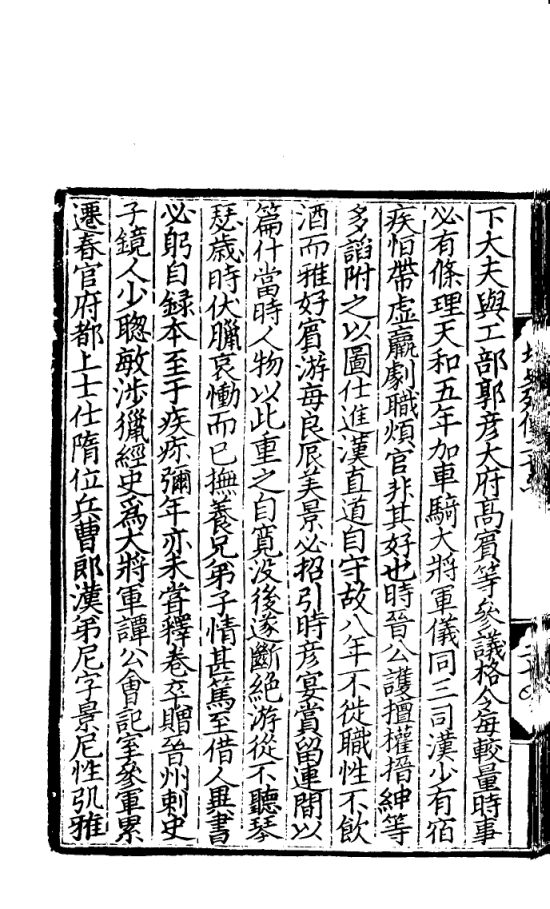 下大夫與工部郭彦大府髙賓等參議格令每較量時事
必有條理天和五年加車騎大將軍儀同三司漢少有宿
疾恒帶虚羸劇職煩官非其好也時晉公護擅權搢紳等
多諂附之以圖仕進漢直道自守故八年不徙職性不飲
酒而雅好賓游每良辰美景必招引時彦宴賞留連間以
篇什當時人物以此重之自寬没後遂斷絶游從不聽琴
瑟歳時伏臘哀慟而已撫養兄弟子情甚篤至借人異書
必躬自録本至于疾疹彌年亦未嘗釋卷卒贈晉州刺史
子鏡人少聦敏涉獵經史爲大將軍譚公㑹記室參軍累
遷春官府都上士仕隋位兵曹郎漢弟尼字景尼性弘雅